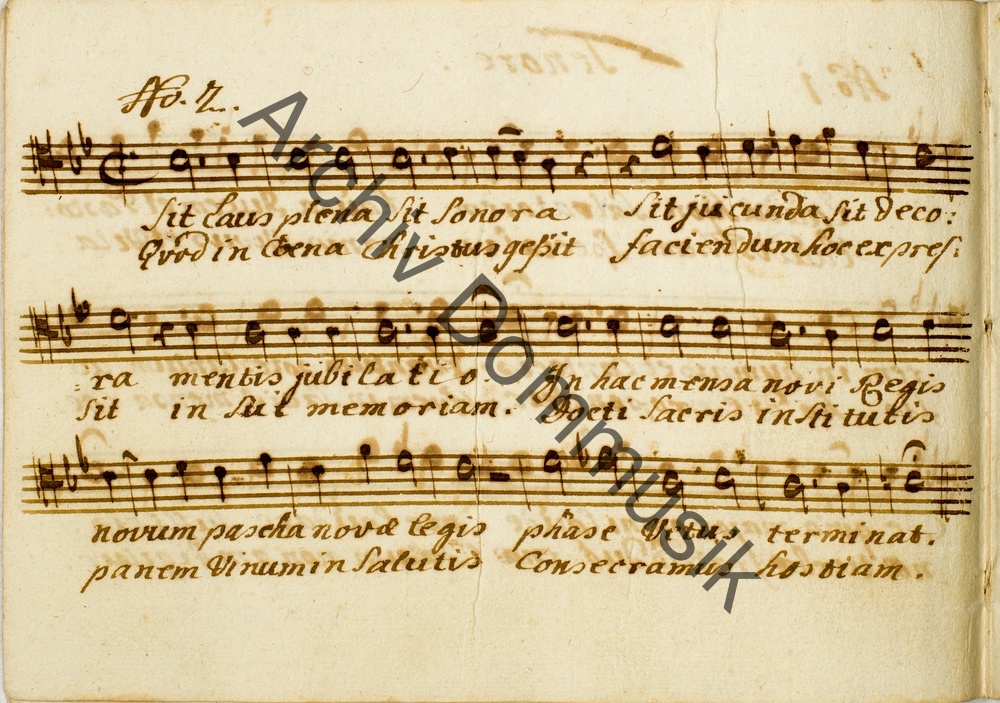 No. 2.
Sit Laus plena sit sonora sit jucunda sit deco:
Quod in Coena Christus geßit faciendum hoc expres:
ra mentis jubilatio. In hac mensa novi Regis
sit in sui memoriam. Docti sacris institutis
novum pascha novæ legis phase Vetus terminat.
panem Vinum in Salutis Consecramus hostiam.
Archiv Dommusik